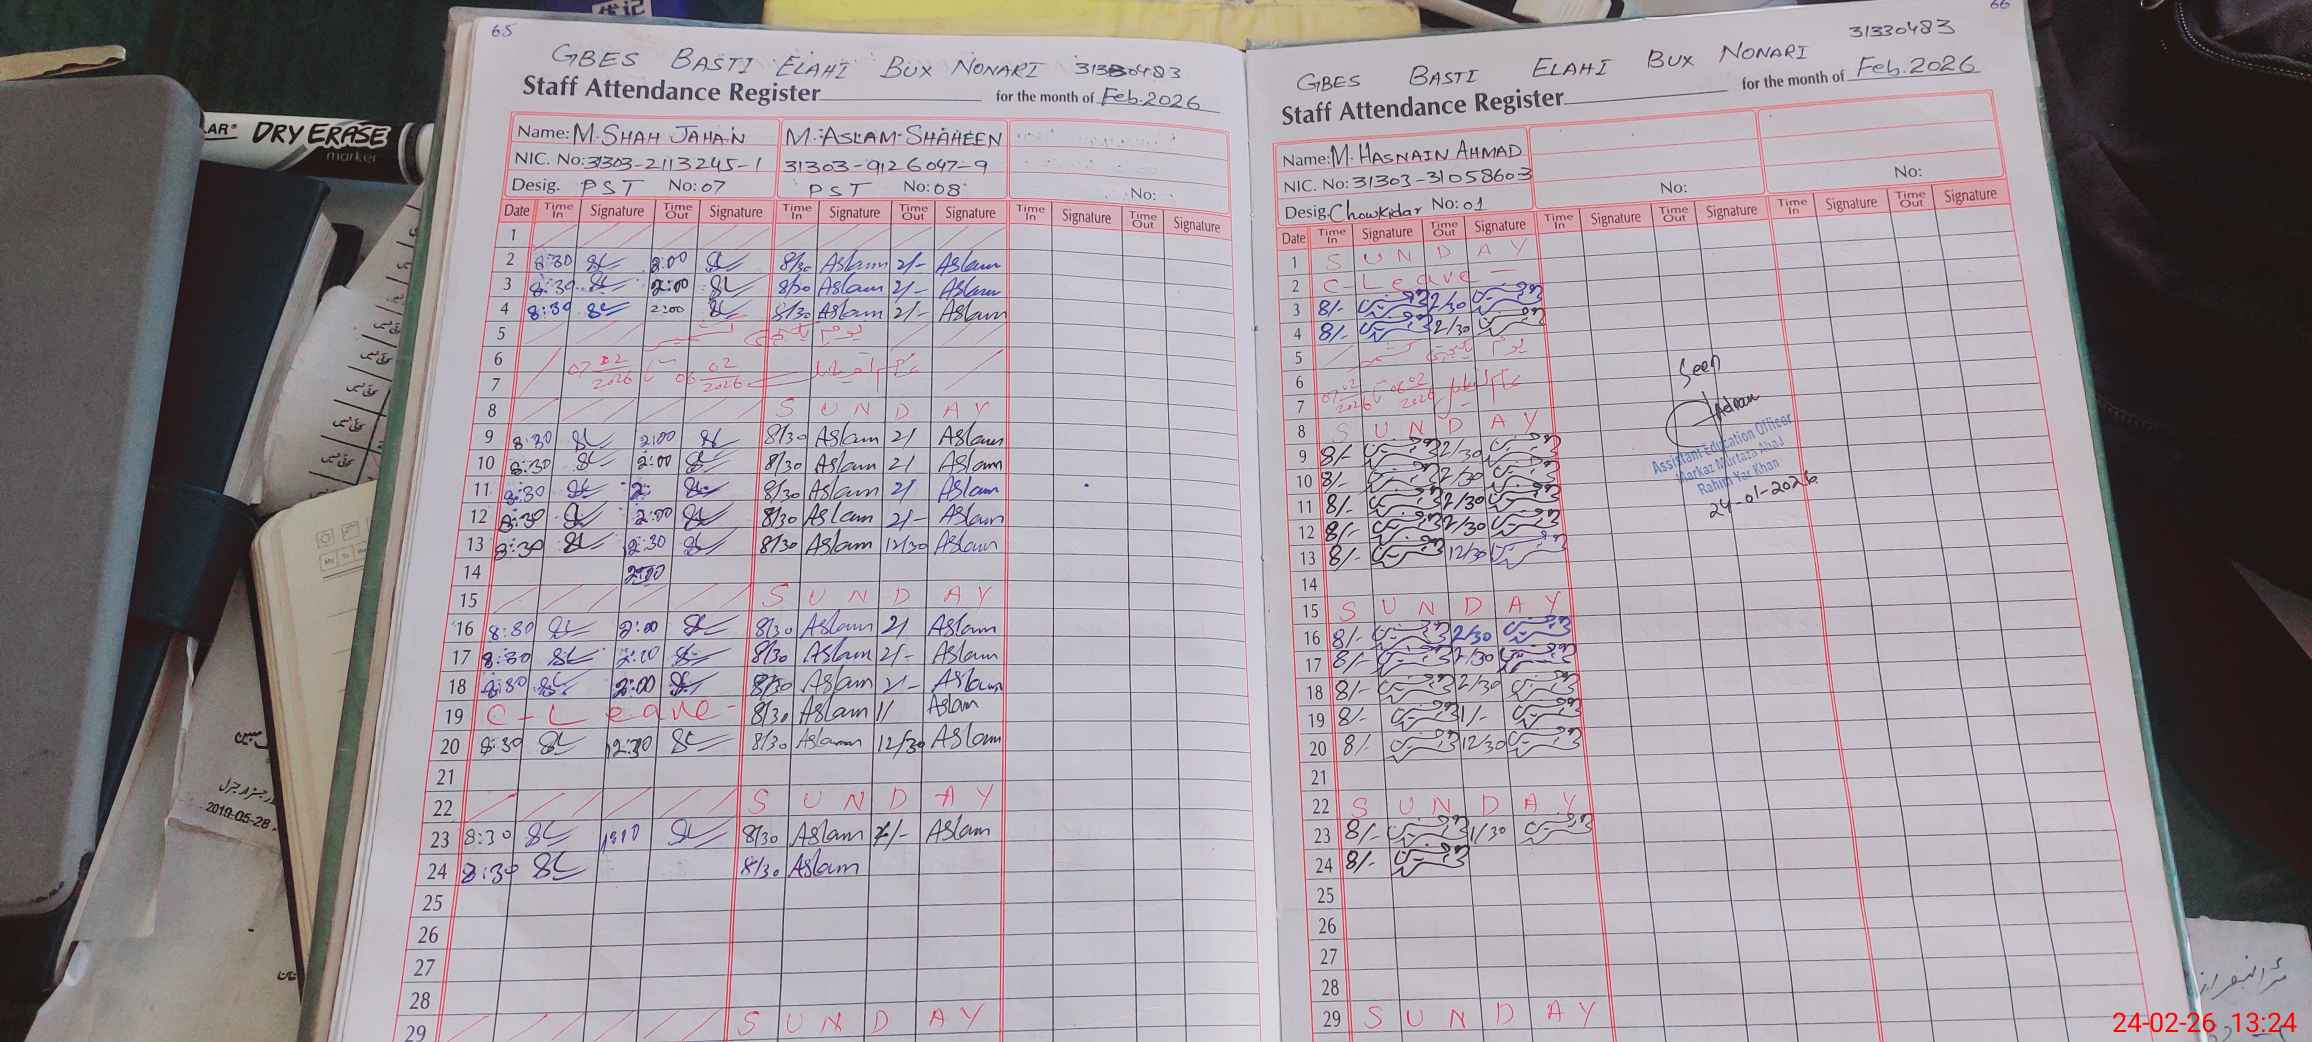 65
GBES BASTI ELAHI BUX NONARI 31330483
Staff Attendance Register for the month of Feb.2026
Name: M. SHAH JAHAN M. ASLAM SHAHEEN
NIC. No: 31303-2113245-1 31303-9126047-9
Desig. PST No: 07 PST No: 08 No:
Date Time In Signature Time Out Signature Time In Signature Time Out Signature Time In Signature Time Out Signature
1
2 8:30 2:00 8/30 Aslam 2/- Aslam
3 8:30 2:00 8/30 Aslam 2/- Aslam
4 8:30 2:00 8/30 Aslam 2/- Aslam
5
6 07 02 2026 06 02 2026
7
8 SUNDAY
9 8:30 2:00 8/30 Aslam 2/ Aslam
10 8:30 2:00 8/30 Aslam 2/ Aslam
11 8:30 2: 8/30 Aslam 2/ Aslam
12 8:30 2:00 8/30 Aslam 2/- Aslam
13 8:30 12:30 8/30 Aslam 12/30 Aslam
14 2:00
15 SUNDAY
16 8:30 2:00 8/30 Aslam 2/ Aslam
17 8:30 2:00 8/30 Aslam 2/- Aslam
18 8:30 2:00 8/30 Aslam 2/- Aslam
19 C-Leave- 8/30 Aslam 1/ Aslam
20 8:30 12:30 8/30 Aslam 12/30 Aslam
21
22 SUNDAY
23 8:30 8/30 Aslam Aslam
24 8:30 8/30 Aslam
25
26
27
28
29 SUNDAY
66
31330483
GBES BASTI ELAHI BUX NONARI
Staff Attendance Register for the month of Feb.2026
Name: M. HASNAIN AHMAD
NIC. No: 31303-3105860-3
Desig. Chowkidar No: 01 No: No:
Date Time In Signature Time Out Signature Time In Signature Time Out Signature Time In Signature Time Out Signature
1 SUNDAY
2 C-Leave -
3 8/- 2/30
4 8/- 2/30
5
6 07 02 2026 06 02 2026
7
8 SUNDAY
9 8/- 2/30
10 8/- 2/30
11 8/- 2/30
12 8/- 2/30
13 8/- 12/30
14
15 SUNDAY
16 8/- 2/30
17 8/- 2/30
18 8/- 2/30
19 8/- 1/-
20 8/- 12/30
21
22 SUNDAY
23 8/- 1/30
24 8/-
25
26
27
28
29 SUNDAY
Seen
Adnan
Assistant Education Officer
Markaz Murtaza Abad
Rahim Yar Khan
24-01-2026
DRY ERASE
marker
2019-05-28
24-02-26 13:24